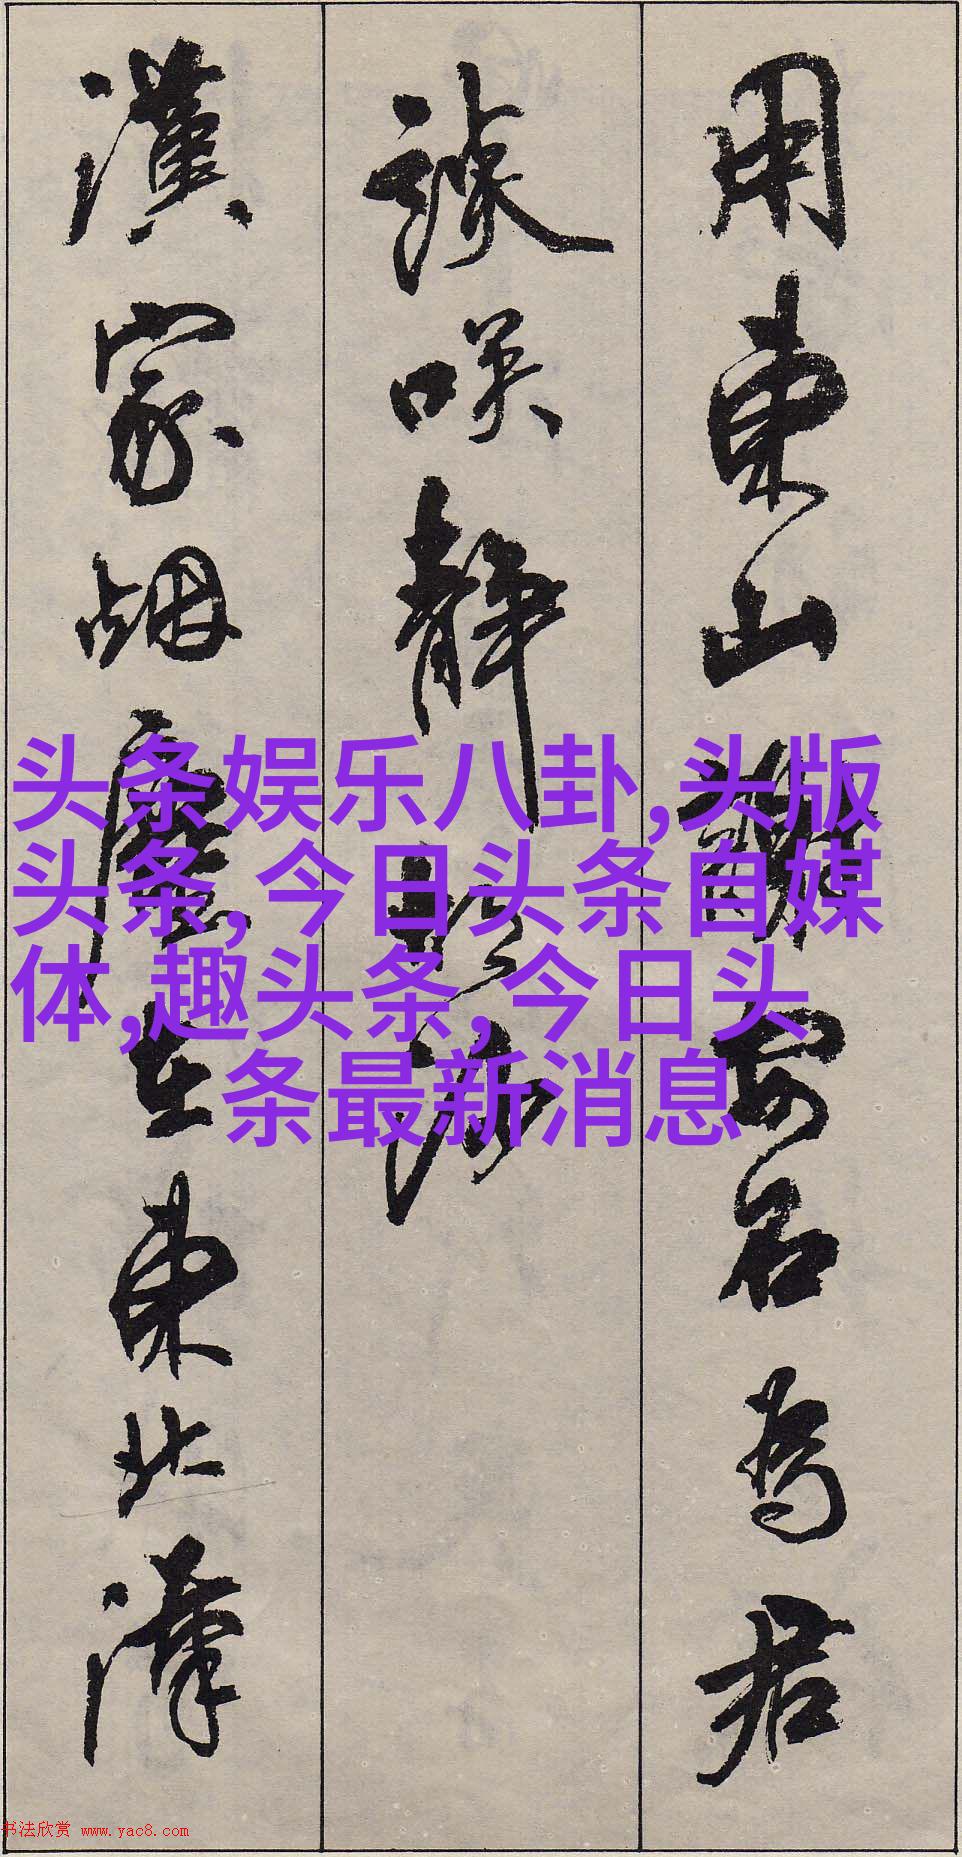 用東山謝安石為君
談咲静胡沙
漢家烟塵在東北漢
头条娱乐八卦,头版
头条, 今日头条自媒
体,趣头条, 今日头
条最新消息
书法欣赏 www.yac8.com